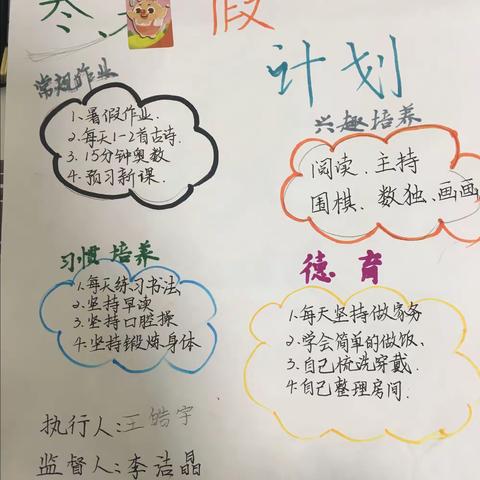 寒 假
计划
常规作业
1、暑假作业.
2、每天1-2首古诗.
3、15分钟奥数
4、预习新课.
兴趣培养
阅读、主持
围棋、数独、画画
习惯培养
1.每天练习书法,
2.坚持早读
3.坚持口腔操
4.坚持锻炼身体
德育
1、每天坚持做家务
2、学会简单的做饭.
3、自己梳洗穿戴.
4、自己整理房间.
执行人:王皓宇
监督人:李洁晶